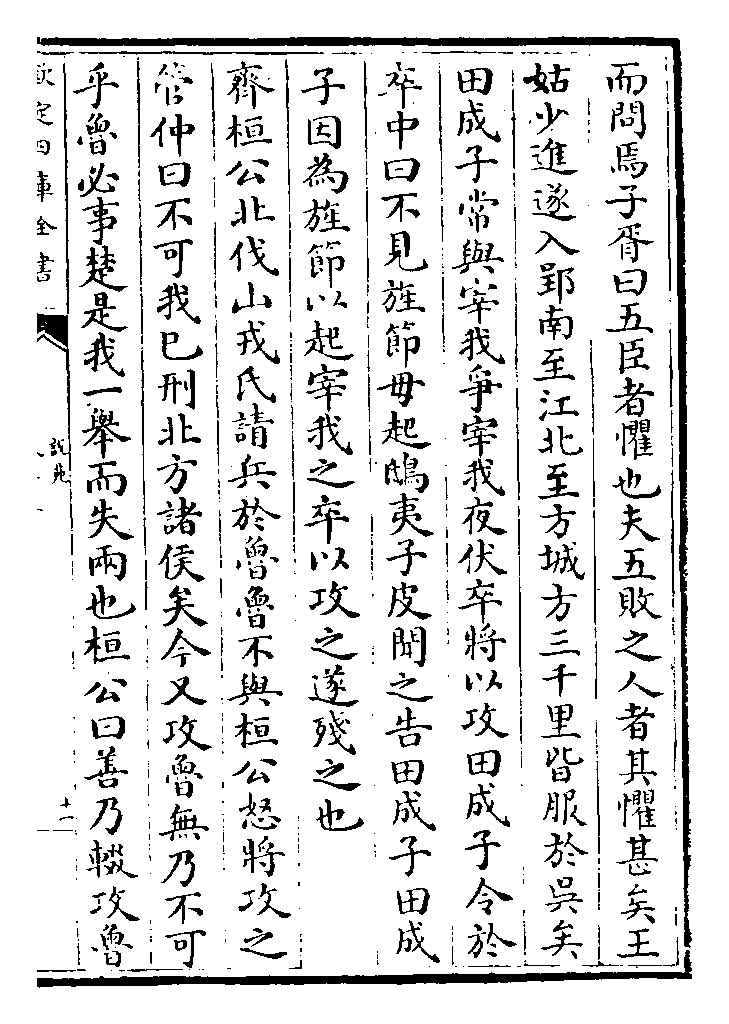 而問焉子胥曰五臣者懼也夫五敗之人者其懼甚矣王
姑少進遂入郢南至江北至方城方三千里皆服於吳矣
田成子常與宰我爭宰我夜伏卒將以攻田成子令於
卒中曰不見旌節毋起鴟夷子皮聞之告田成子田成
子因為旌節以起宰我之卒以攻之遂殘之也
齊桓公北伐山戎氏請兵於魯魯不與桓公怒將攻之
管仲曰不可我已刑北方諸侯矣今又攻魯無乃不可
乎魯必事楚是我一舉而失兩也桓公曰善乃輟攻魯
欽定四庫全書
說苑
十一